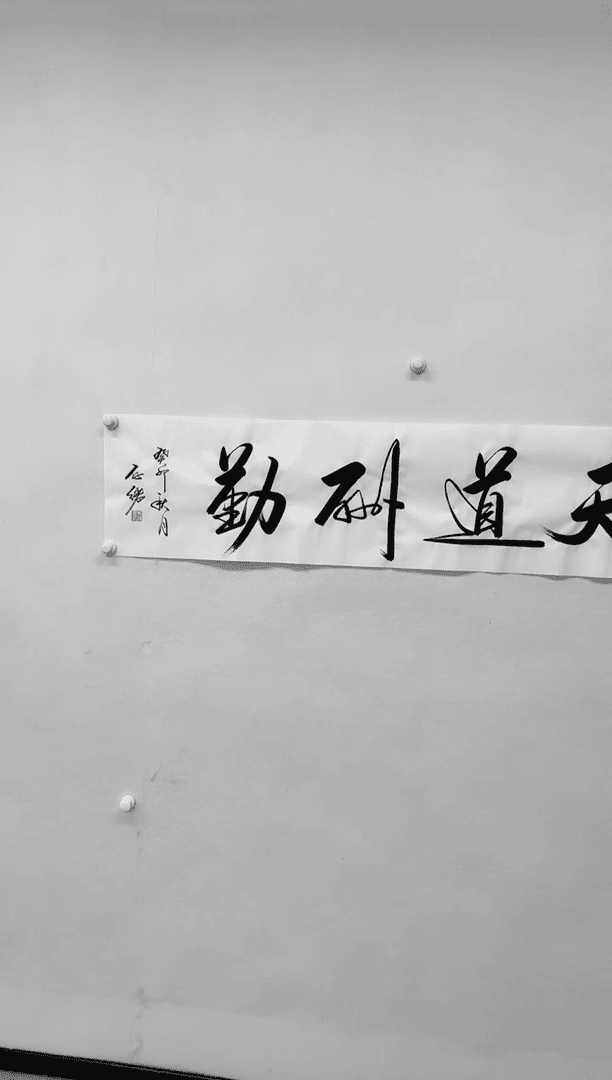 天道酬勤
癸卯秋月